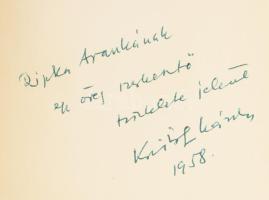 Ripka Arankának
egy öreg szerkesztő
tisztelete jeléül
Kristóf Károly
1958.